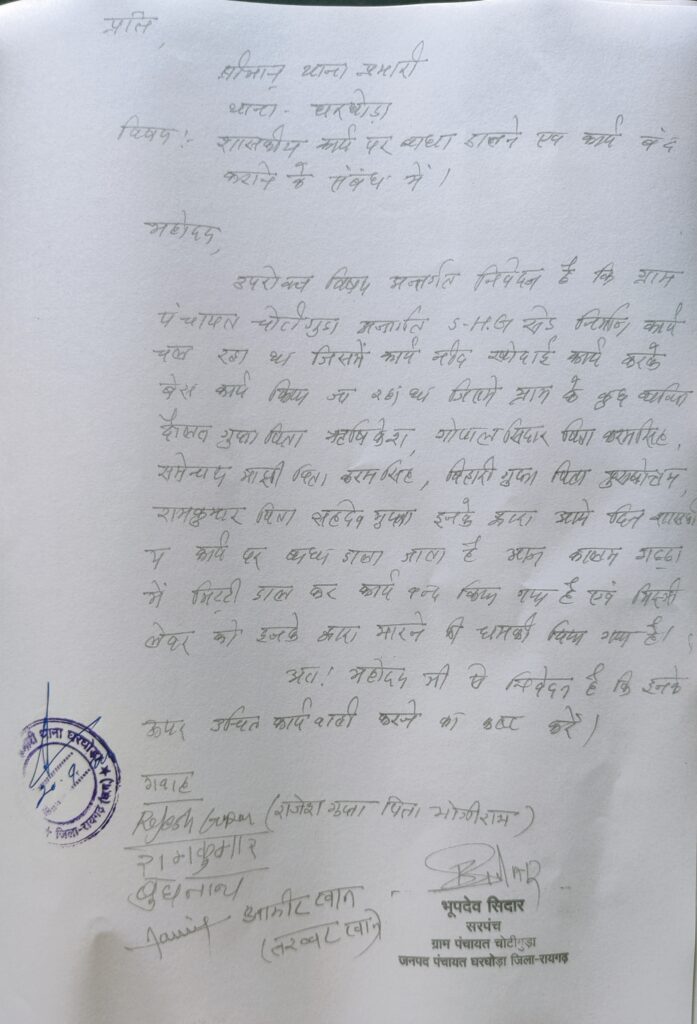 प्रति,
श्रीमान् थाना प्रभारी
थाना - घरघोड़ा
विषय:- शासकीय कार्य पर बाधा डालने एवं कार्य बंद
कराने के संबंध में।
महोदय,
उपरोक्त विषय अन्तर्गत निवेदन है कि ग्राम
पंचायत चोटीगुड़ा अन्तर्गत S-H.G शेड निर्माण कार्य
चल रहा था जिसमें कार्य नींव खोदाई कार्य करके
बेस कार्य किया जा रहा था जिसमें ग्राम के कुछ व्यक्ति
गुप्ता पिता ऋषिकेश, गोपाल सिदार पिता करमसिंह,
पिता करमसिंह, बिहारी गुप्ता पिता पुरुषोत्तम,
रामकुमार पिता सहदेव गुप्ता इनके द्वारा आये दिन शासकी
य कार्य पर बाधा डाला जाता है कालम गड्ढा
में मिट्टी डाल कर कार्य बन्द किया गया है एवं मिस्त्री
लेबर को इनके द्वारा मारने की धमकी दिया गया है।
अतः महोदय जी से निवेदन है कि इनके
ऊपर उचित कार्यवाही करने का कष्ट करें।
थाना घरघोड़ा
जिला-रायगढ़ (छ.ग.)
गवाह
Rajesh Gupta (राजेश गुप्ता पिता मोजीराम)
रामकुमार
बुधनाथ
आमीर खान
(सरव्वट खान)
भूपदेव सिदार
सरपंच
ग्राम पंचायत चोटीगुड़ा
जनपद पंचायत घरघोड़ा जिला-रायगढ़